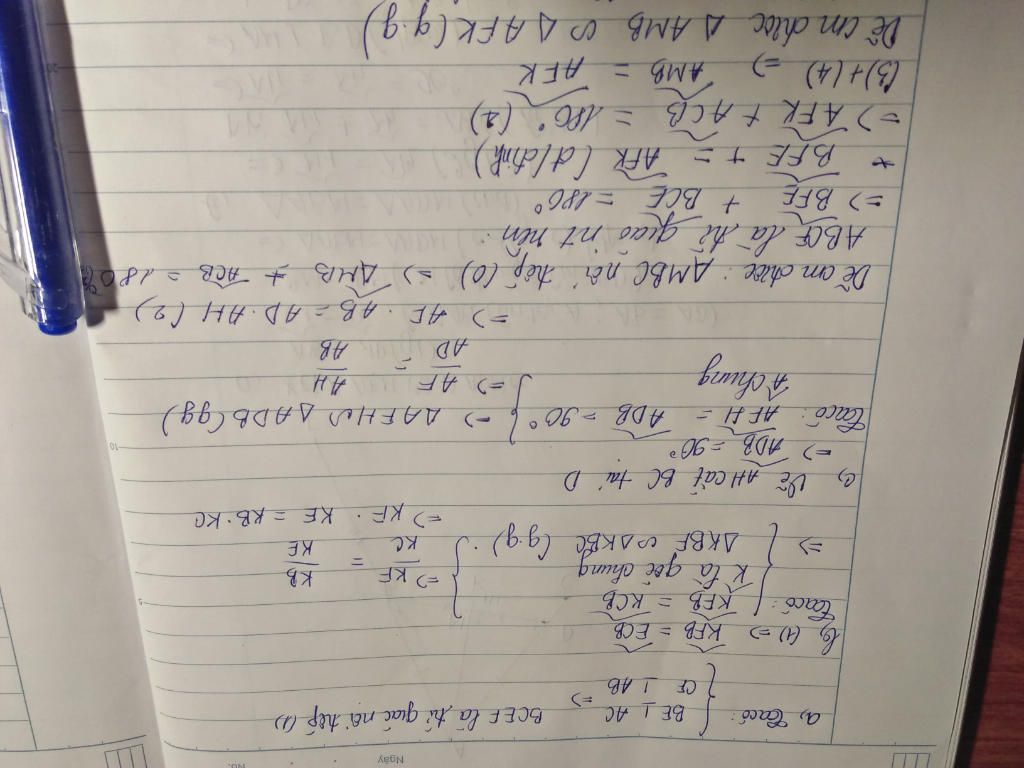 No.
Ngày
a, Ta có: { BE ⊥ AC
CF ⊥ AB => BCEF là tứ giác nội tiếp (1)
b, (1) => KFB = ECB
Ta có: { KFB = KCB
K là góc chung } => KF/KC = KB/KE
=> ΔKBF ∽ ΔKBC (g.g).
=> KF . KE = KB.KC
c, Vẽ AH cắt BC tại D
=> ADB = 90°
Ta có: AFH = ADB = 90°
 chung } => ΔAFH ∽ ΔADB (gg)
=> AF/AD = AH/AB
=> AF . AB = AD.AH (2)
Dễ cm được: AMBC nội tiếp (O) => AMB + ACB = 180°
là tứ giác nt nên
=> BFE + BCE = 180°
+ BFE + = AFK (đ/đỉnh)
=> AFK + ACB = 180°
(3)+(4) => AMB = AFK
Dễ cm được Δ AMB ∽ Δ AFK (g.g)